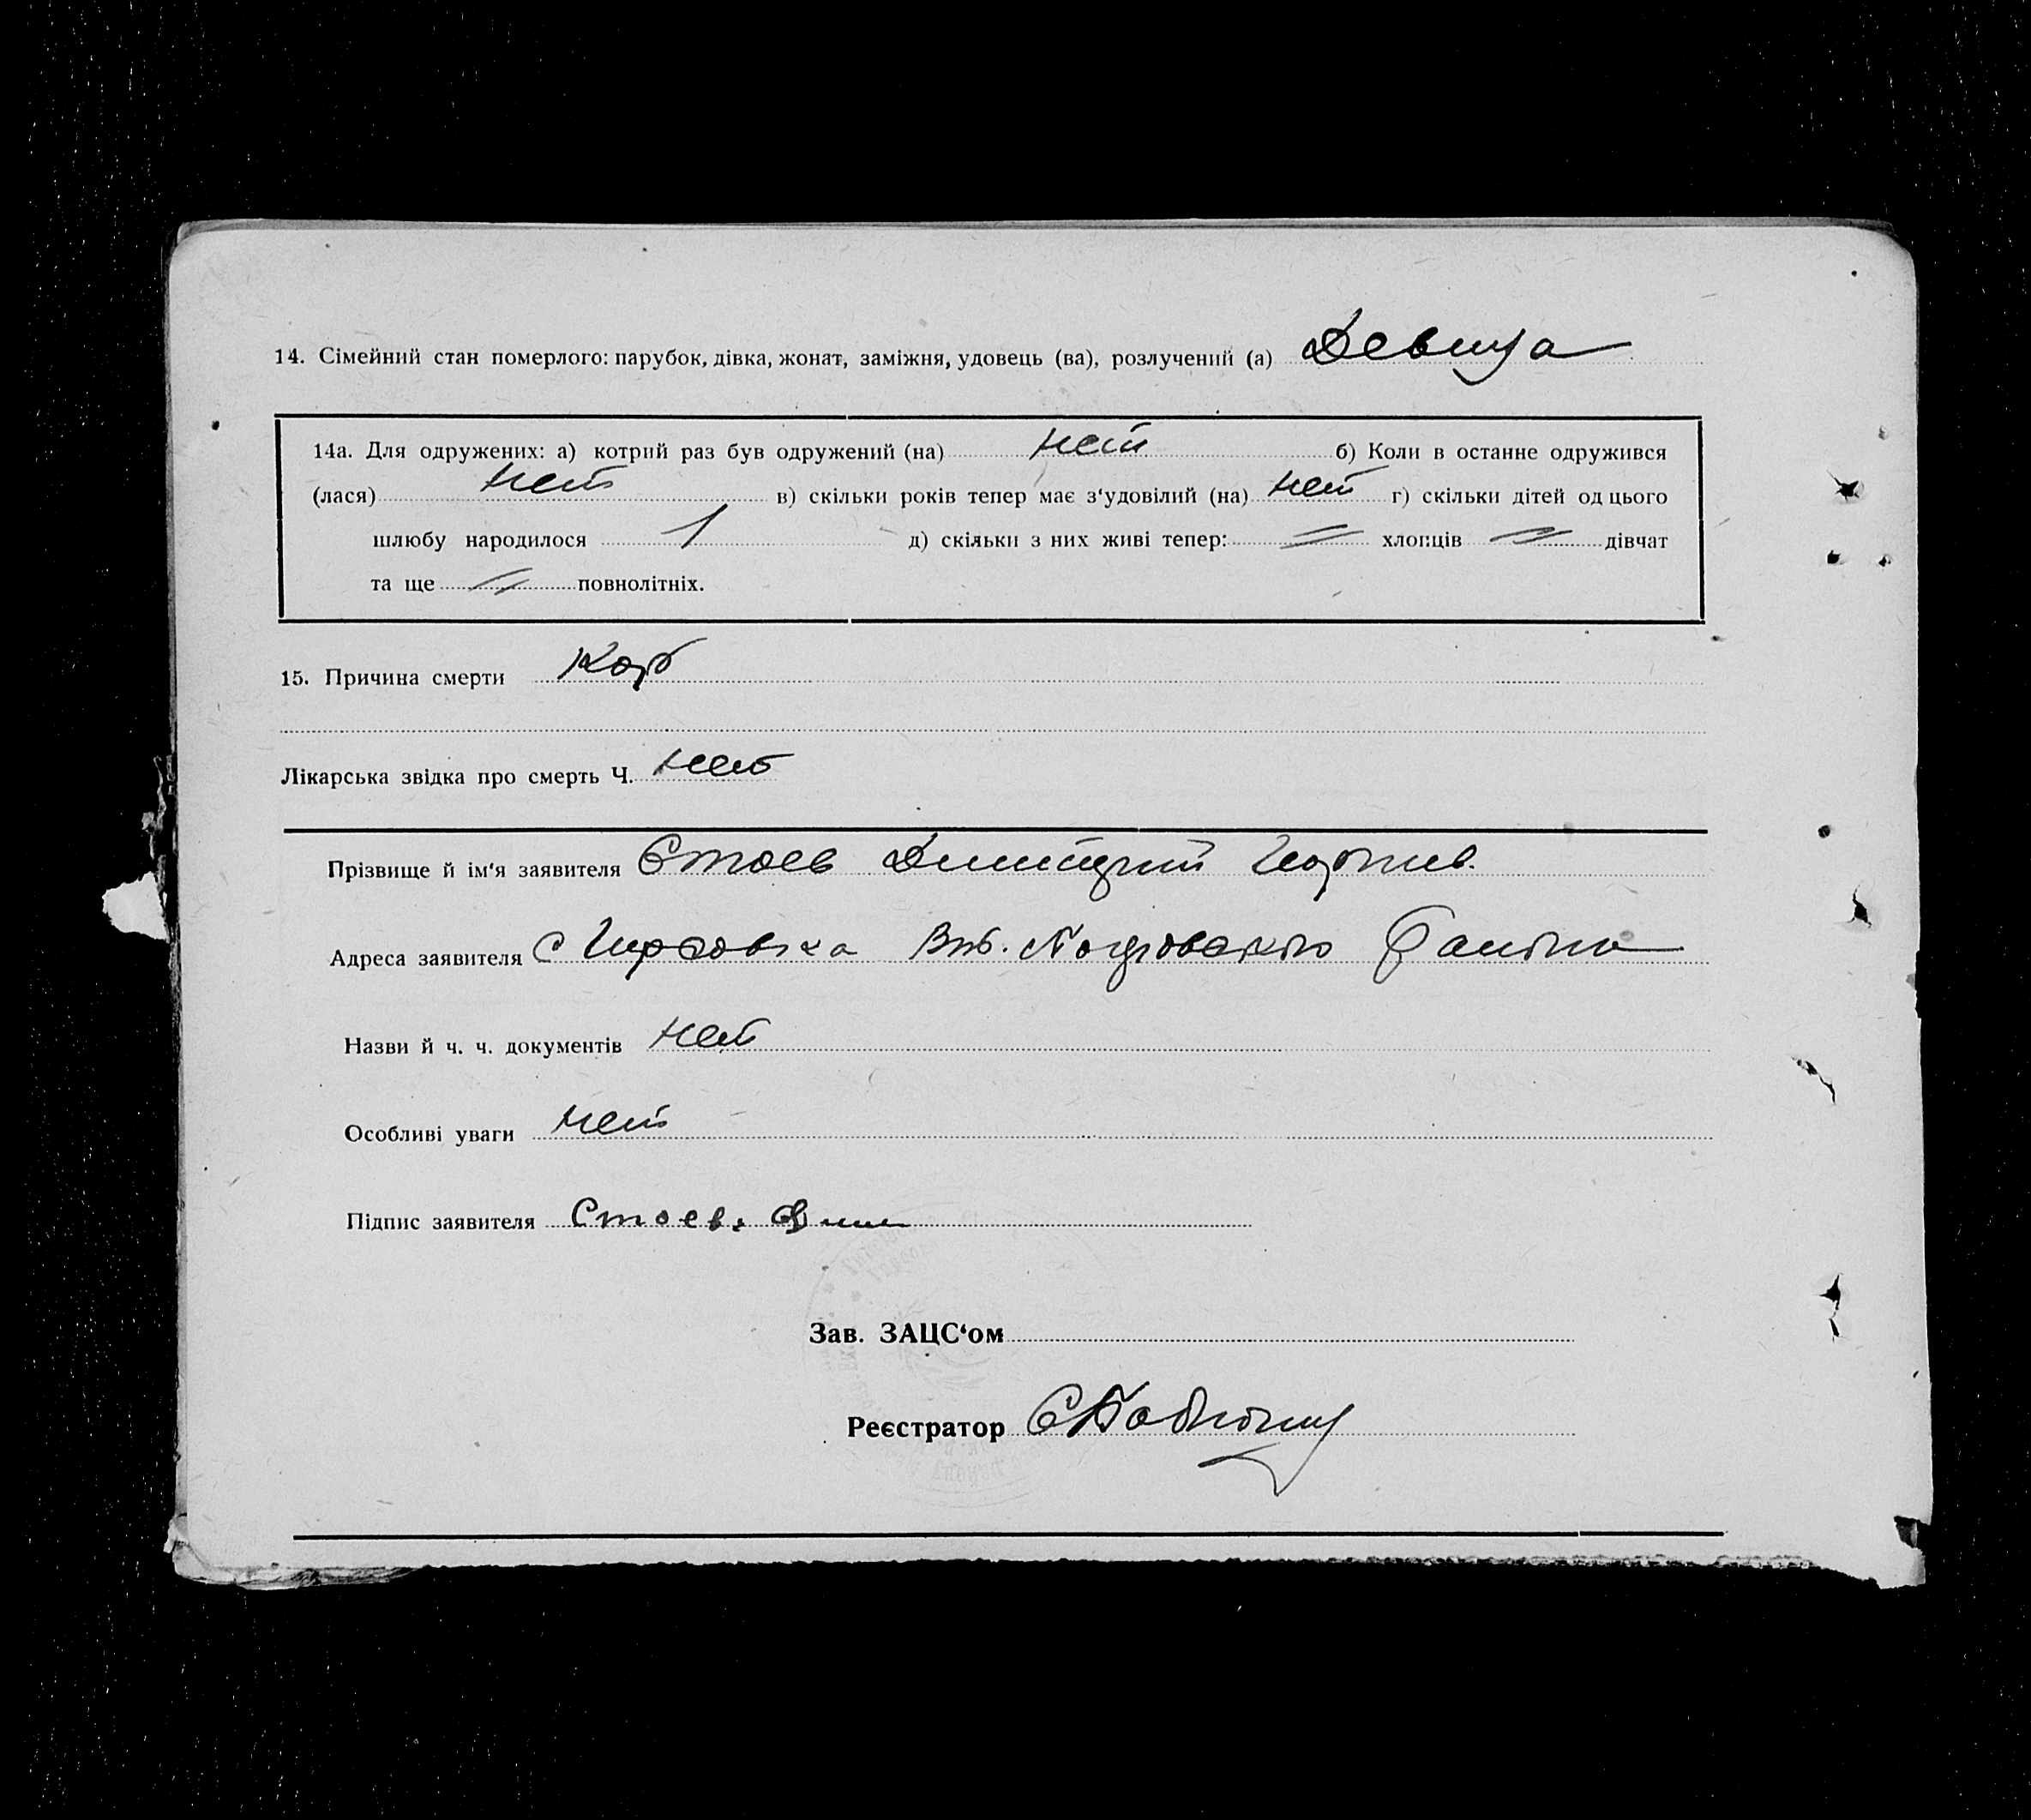 14. Сімейний стан померлого: парубок, дівка, жонат, заміжня, удовець (ва), розлучений (а) Девица
14а. Для одружених: а) котрий раз був одружений (на) нет б) Коли в останнє одружився
(лася) нет в) скільки років тепер має з‘удовілий (на) нет г) скільки дітей од цього
шлюбу народилося д) скільки з них живі тепер: хлопців дівчат
та ще повнолітніх.
15. Причина смерти Корь
Лікарська звідка про смерть Ч. нет
Прізвище й ім‘я заявителя Стоев Димитрий Георгиев.
Адреса заявителя с
Назви й ч. ч. документів нет
Особливі уваги нет
Підпис заявителя Стоев
Зав. ЗАЦС‘ом
Реєстратор